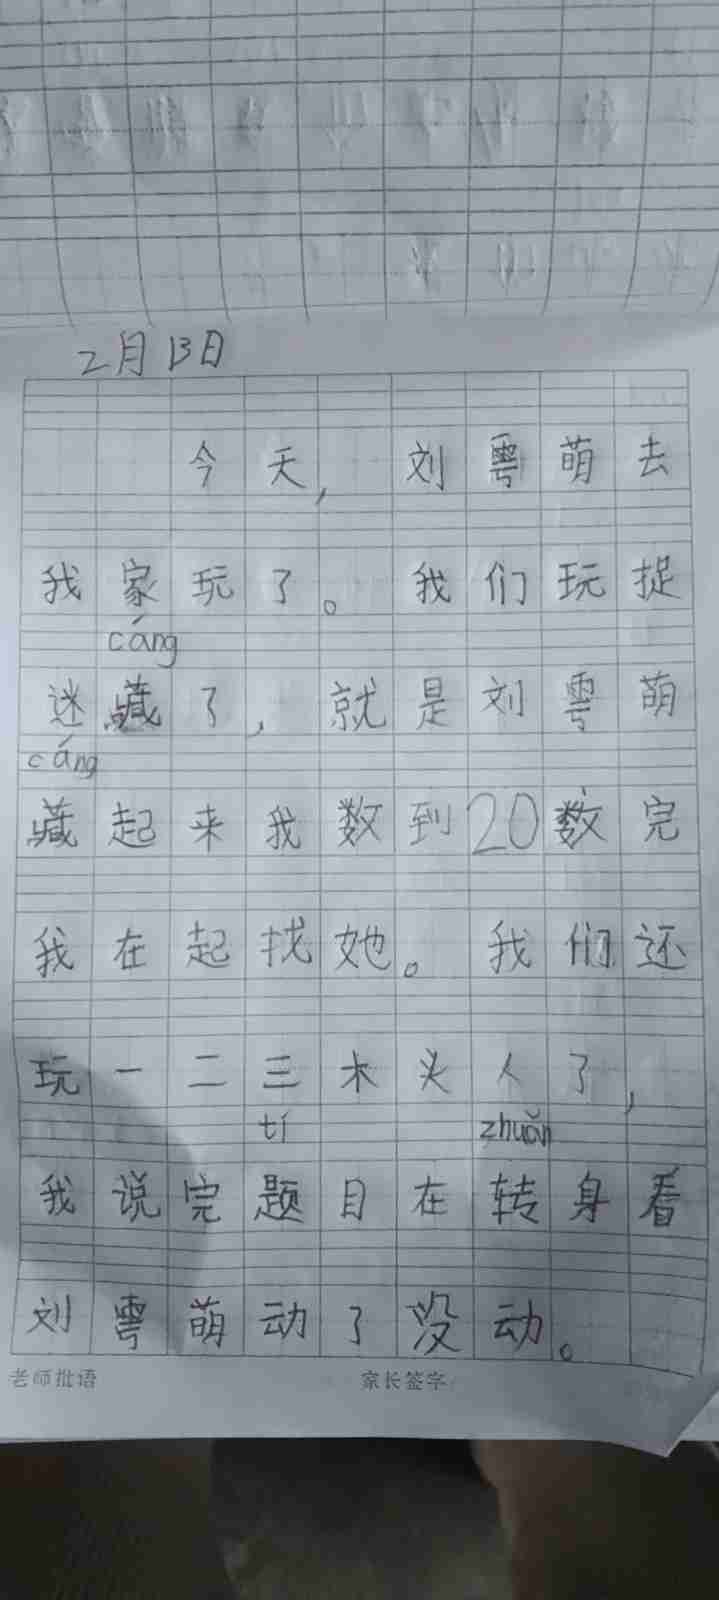 2月13日
今天，刘雩萌去
我家玩了。我们玩捉
cáng
迷藏了，就是刘雩萌
cáng
藏起来我数到20数完
我在起找她。我们还
玩一二三木头人了，
tí zhuǎn
我说完题目在转身看
刘雩萌动了没动。
老师批语 家长签字